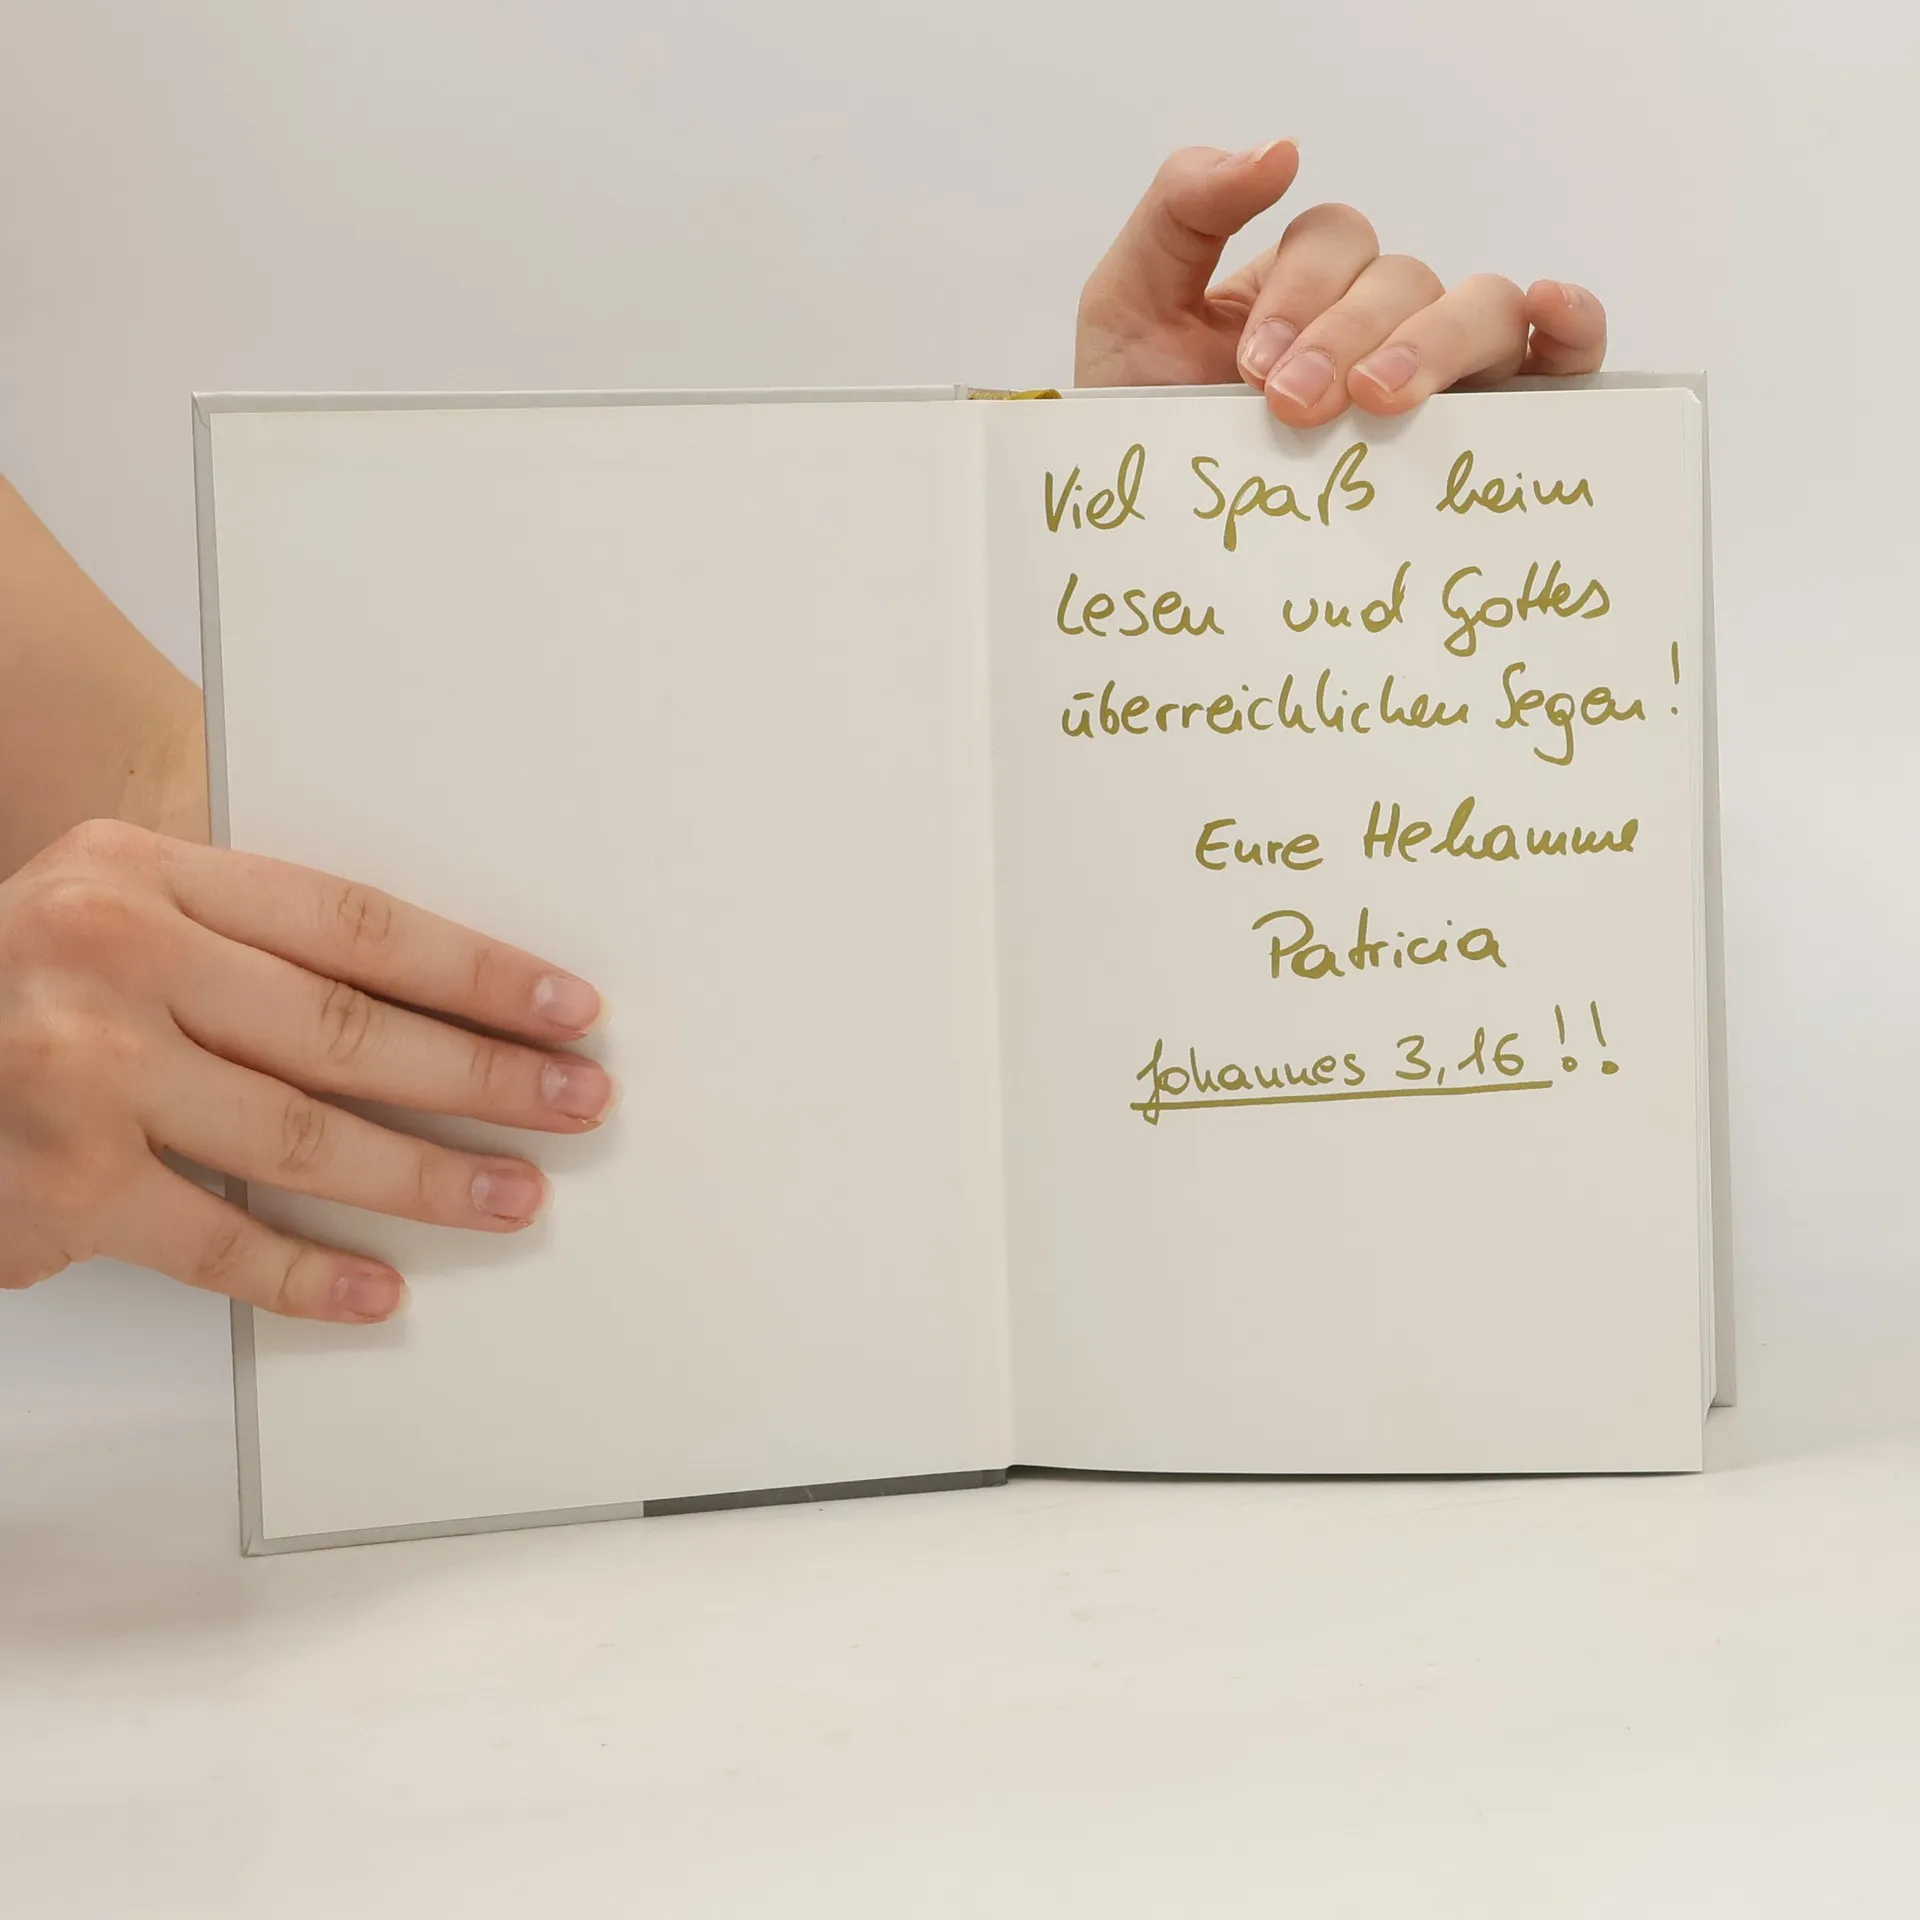 Viel Spaß beim
Lesen und Gottes
überreichlichen Segen!
Eure Hebamme
Patricia
Johannes 3,16!!